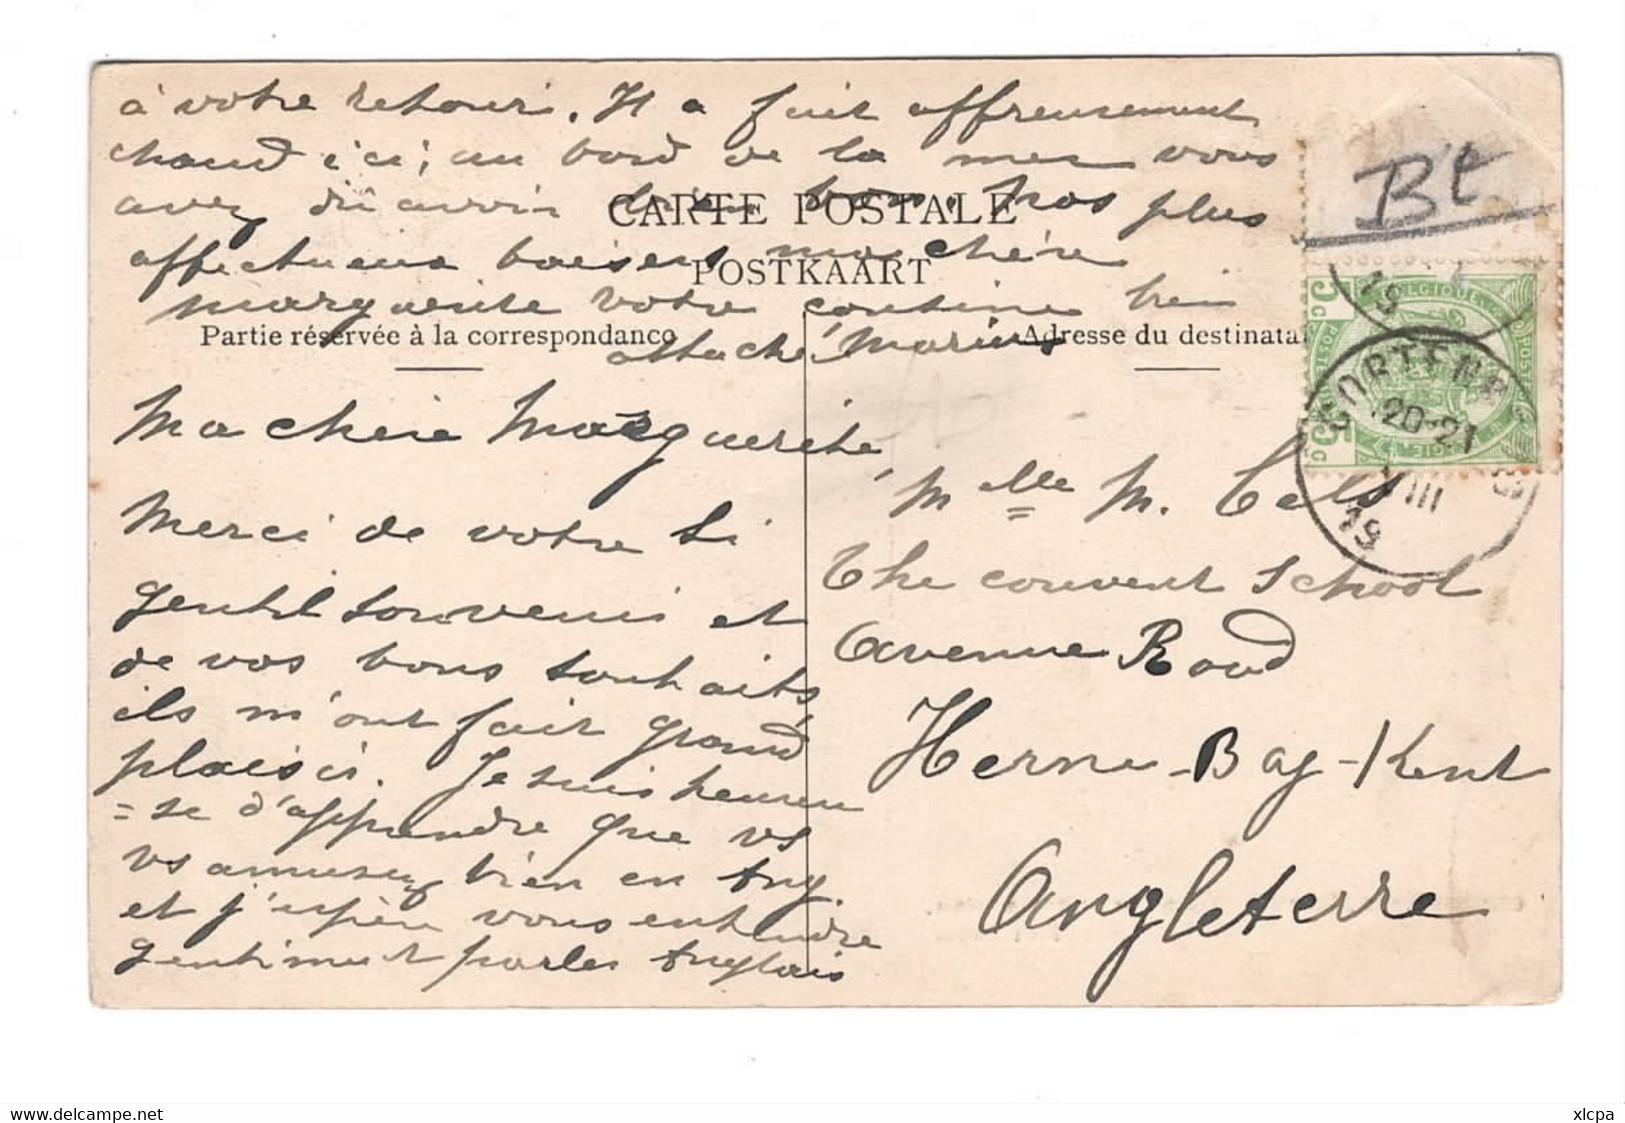 à votre retour. Il a fait affreusement
chaud ici; au bord de la mer vous
avez dû avoir bien bon. Nos plus
CARTE POSTALE
affectueux baisers ma chère
POSTKAART
Marguerite votre cousine bien
Partie réservée à la correspondance
Adresse du destinata
attaché
Ma chère Marguerite
Merci de votre si
gentil souvenir et
de vos bons souhaits,
ils m'ont fait grand
plaisir. Je suis heureu
=se d'apprendre que vs
vs amusez bien en Ang.
et j'espère vous entendre
gentiment parler Anglais
Bt
BELGIQUE
5 c
CORTENB
20-21
VIII
19
Melle M. Cels
The convent School
Avenue Road
Herne-Bay-Kent
Angleterre
www.delcampe.net
xlcpa